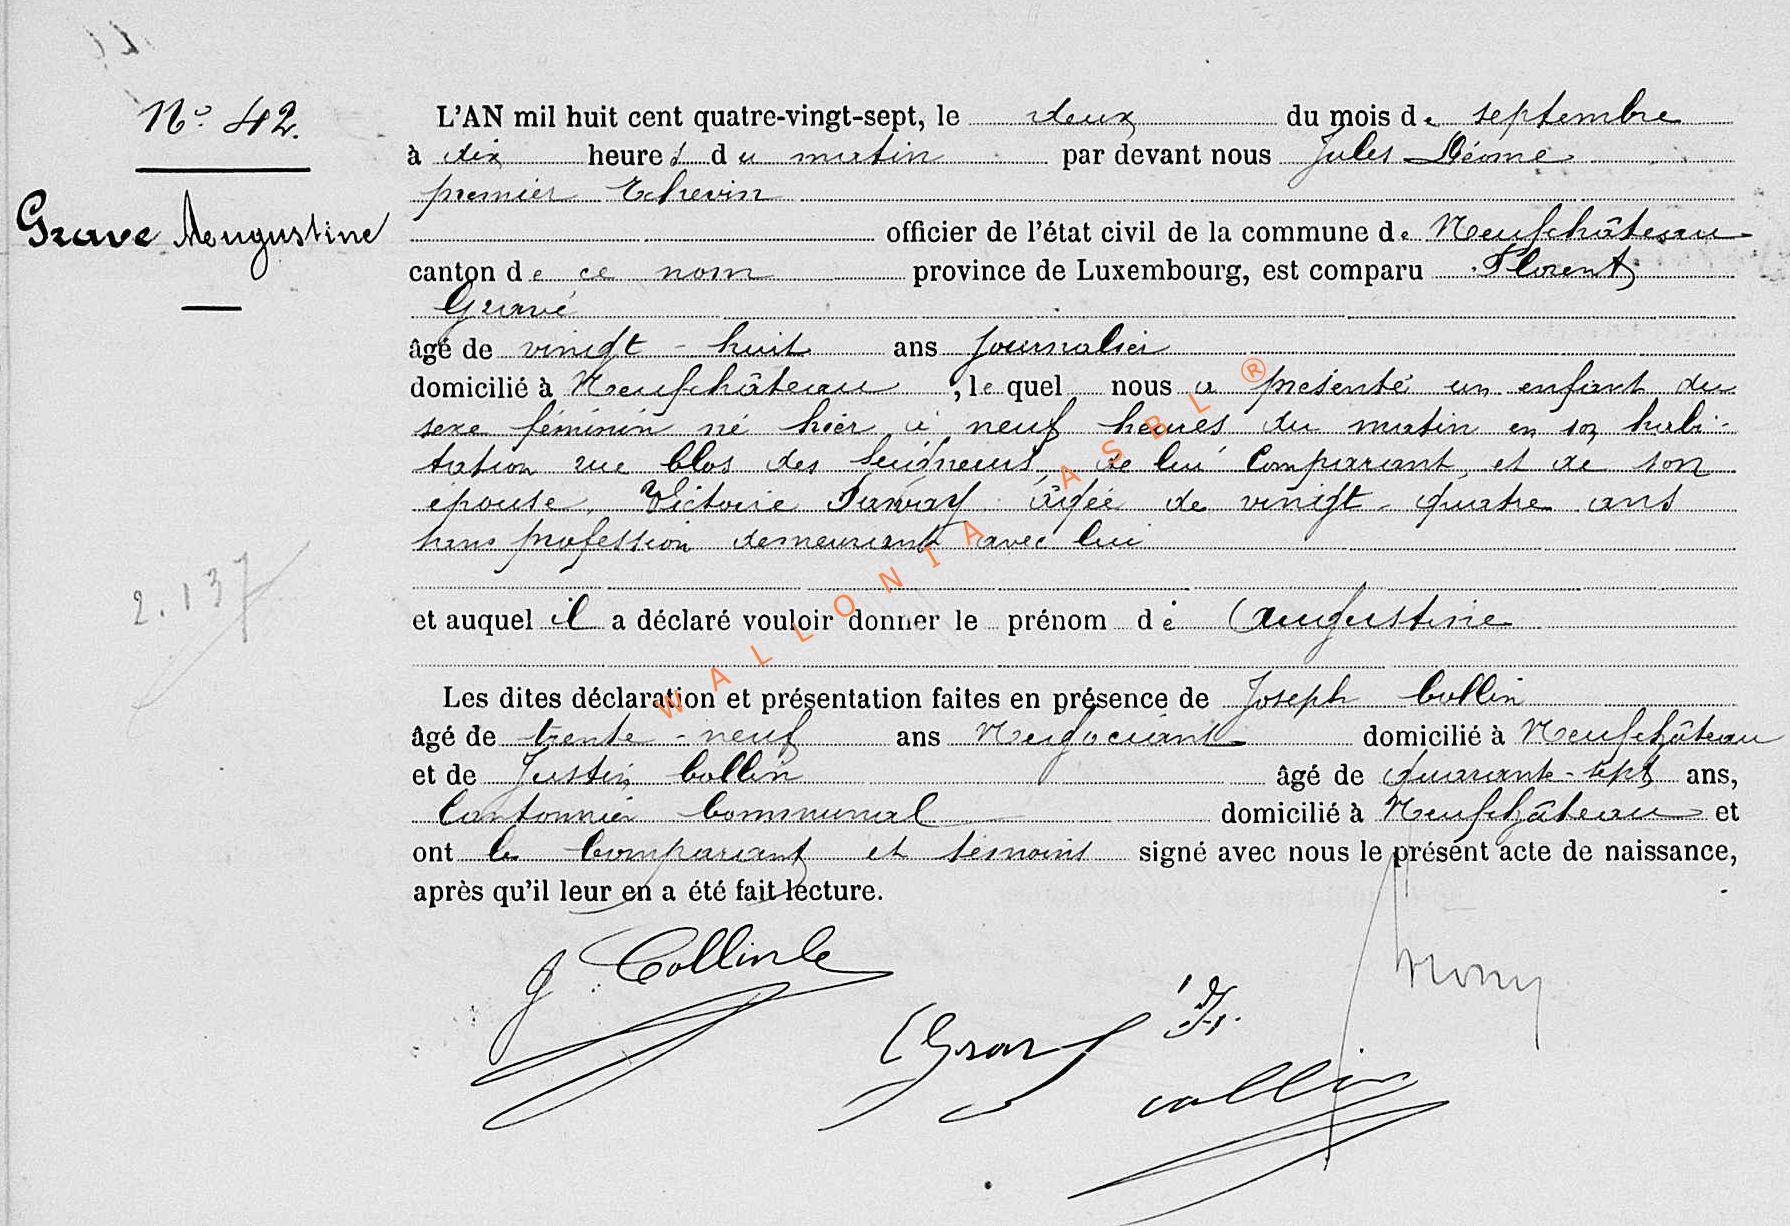 N° 42.
Grave Augustine
L'AN mil huit cent quatre-vingt-sept, le deux du mois de septembre
à dix heures du matin par devant nous Jules Léome
premier Echevin
officier de l'état civil de la commune de Neufchâteau
canton de ce nom province de Luxembourg, est comparu Florent
Gravé
âgé de vingt-huit ans journalier
domicilié à Neufchâteau, lequel nous a présenté un enfant du
sexe féminin né hier à neuf heures du matin en son habi-
tation rue Clos des Seigneurs, de lui Comparant, et de son
épouse, Victoire âgée de vingt-quatre ans
sans profession demeurant avec lui
2.137
et auquel il a déclaré vouloir donner le prénom de Augustine
Les dites déclaration et présentation faites en présence de Joseph Collin
âgé de trente-neuf ans Negociant domicilié à Neufchâteau
et de Justin Collin âgé de quarante-sept ans,
Cantonnier Communal domicilié à Neufchâteau et
ont le Comparant et témoins signé avec nous le présent acte de naissance,
après qu'il leur en a été fait lecture.
J Collin
Gravé
Collin
WALLONIA ASBL ®